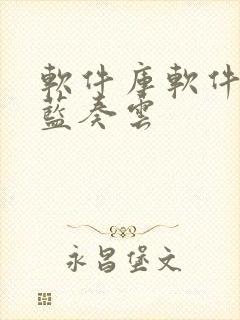 軟件庫軟件
藍奏雲
永昌堡文